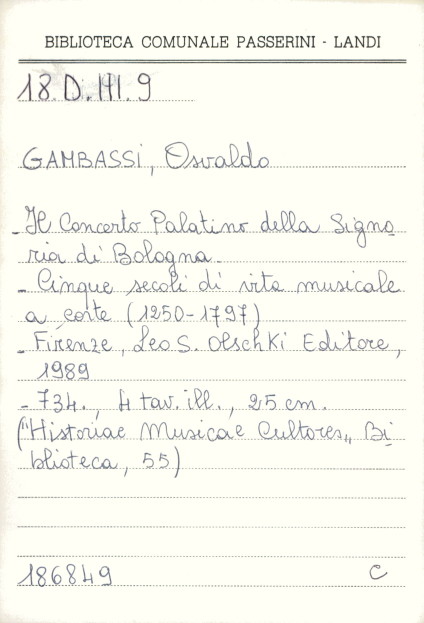 BIBLIOTECA COMUNALE PASSERINI - LANDI
18.D.III.9
GAMBASSI, Osvaldo
- Il Concerto Palatino della Signo
ria di Bologna.
- Cinque secoli di vita musicale
a corte (1250-1797)
- Firenze, Leo S. Olschki Editore,
1989
- 734., 4 tav. ill., 25 cm.
("Historiae Musicae Cultores„ Bi
blioteca, 55)
186849 C